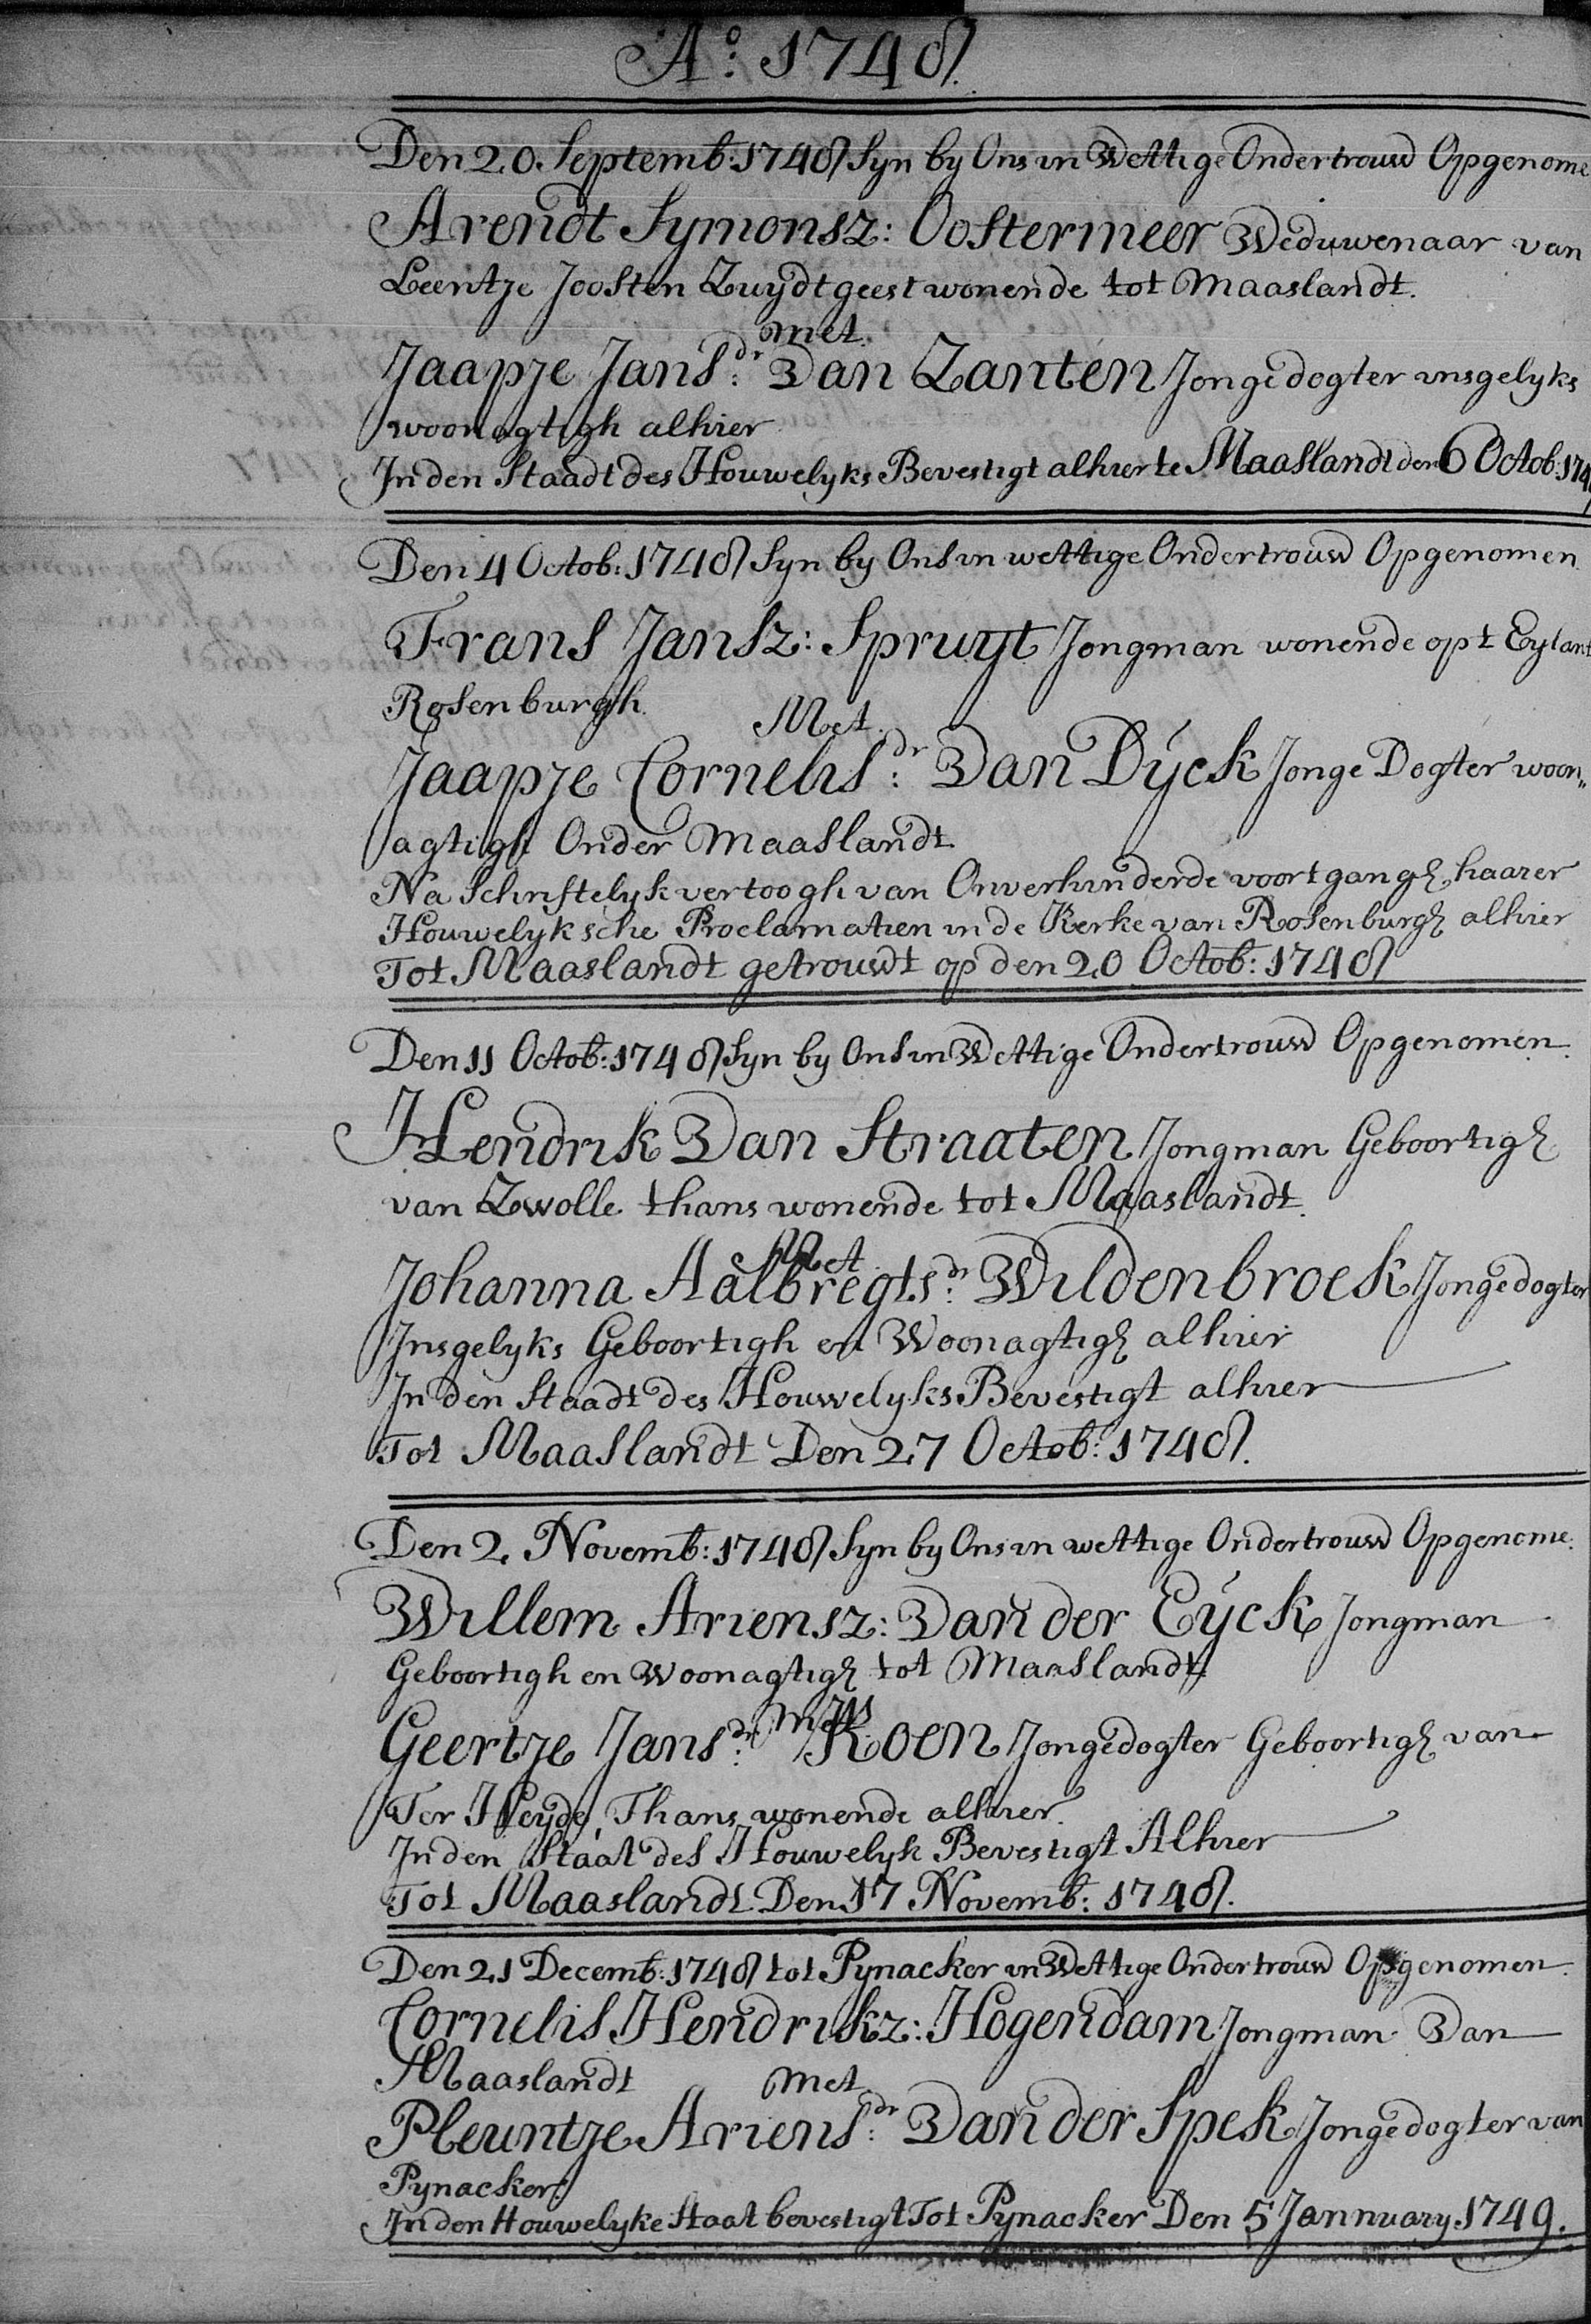 Ao: 1748.
Den 20. Septemb: 1748 Syn by Ons in Wettige Ondertrouw Opgenome
Arendt Symonsz: Oostermeer Weduwenaar van
Leentje Joosten Zuydtgeest wonende tot Maaslandt.
met.
Jaapje Jansdr: Van Zanten Jongedogter insgelyks
woonagtigh alhier
In den Staadt des Houwelyks Bevestigt alhier te Maaslandt den 6 Octob: 174
Den 4 Octob: 1748 Syn by Ons in wettige Ondertrouw Opgenomen.
Frans Jansz: Spruyt Jongman wonende op t Eylant
Rosenburgh.
Met.
Jaapje Cornelisdr: Van Dyck Jonge Dogter woon„
agtigh Onder Maaslandt.
Na Schriftelyk vertoogh van Onverhinderde voortgangh haarer
Houwelyksche Proclamatien in de Kerke van Rosenburgh alhier
Tot Maaslandt getrouwdt op den 20 Octob: 1748
Den 11 Octob: 1748 Syn by Ons in Wettige Ondertrouw Opgenomen.
Hendrik Van Straaten Jongman Geboortigh
van Zwolle thans wonende tot Maaslandt.
Met
Johanna Aalbregtsdr: Wildenbroek Jongedogter
Insgelyks Geboortigh en Woonagtigh alhier
In den Staadt des Houwelyks Bevestigt alhier
Tot Maaslandt Den 27 Octob: 1748.
Den 2. Novemb: 1748 Syn by Ons in wettige Ondertrouw Opgenome.
Willem Ariensz: Van der Eyck Jongman
Geboortigh en Woonagtigh tot Maaslandt.
Met
Geertje Jansdr: Koen Jongedogter Geboortigh van
Ter Heyde, Thans wonende alhier.
In den Staat des Houwelyk Bevestigt Alhier
Tot Maaslandt Den 17 Novemb: 1748.
Den 21 Decemb: 1748 tot Pynacker in Wettige Ondertrouw Opgenomen.
Cornelis Hendrikz: Hogendam Jongman Van
Maaslandt met
Pleuntje Ariensdr: Van der Spek Jongedogter van
Pynacker
In den Houwelyke Staat bevestigt Tot Pynacker Den 5 Jannuary. 1749.